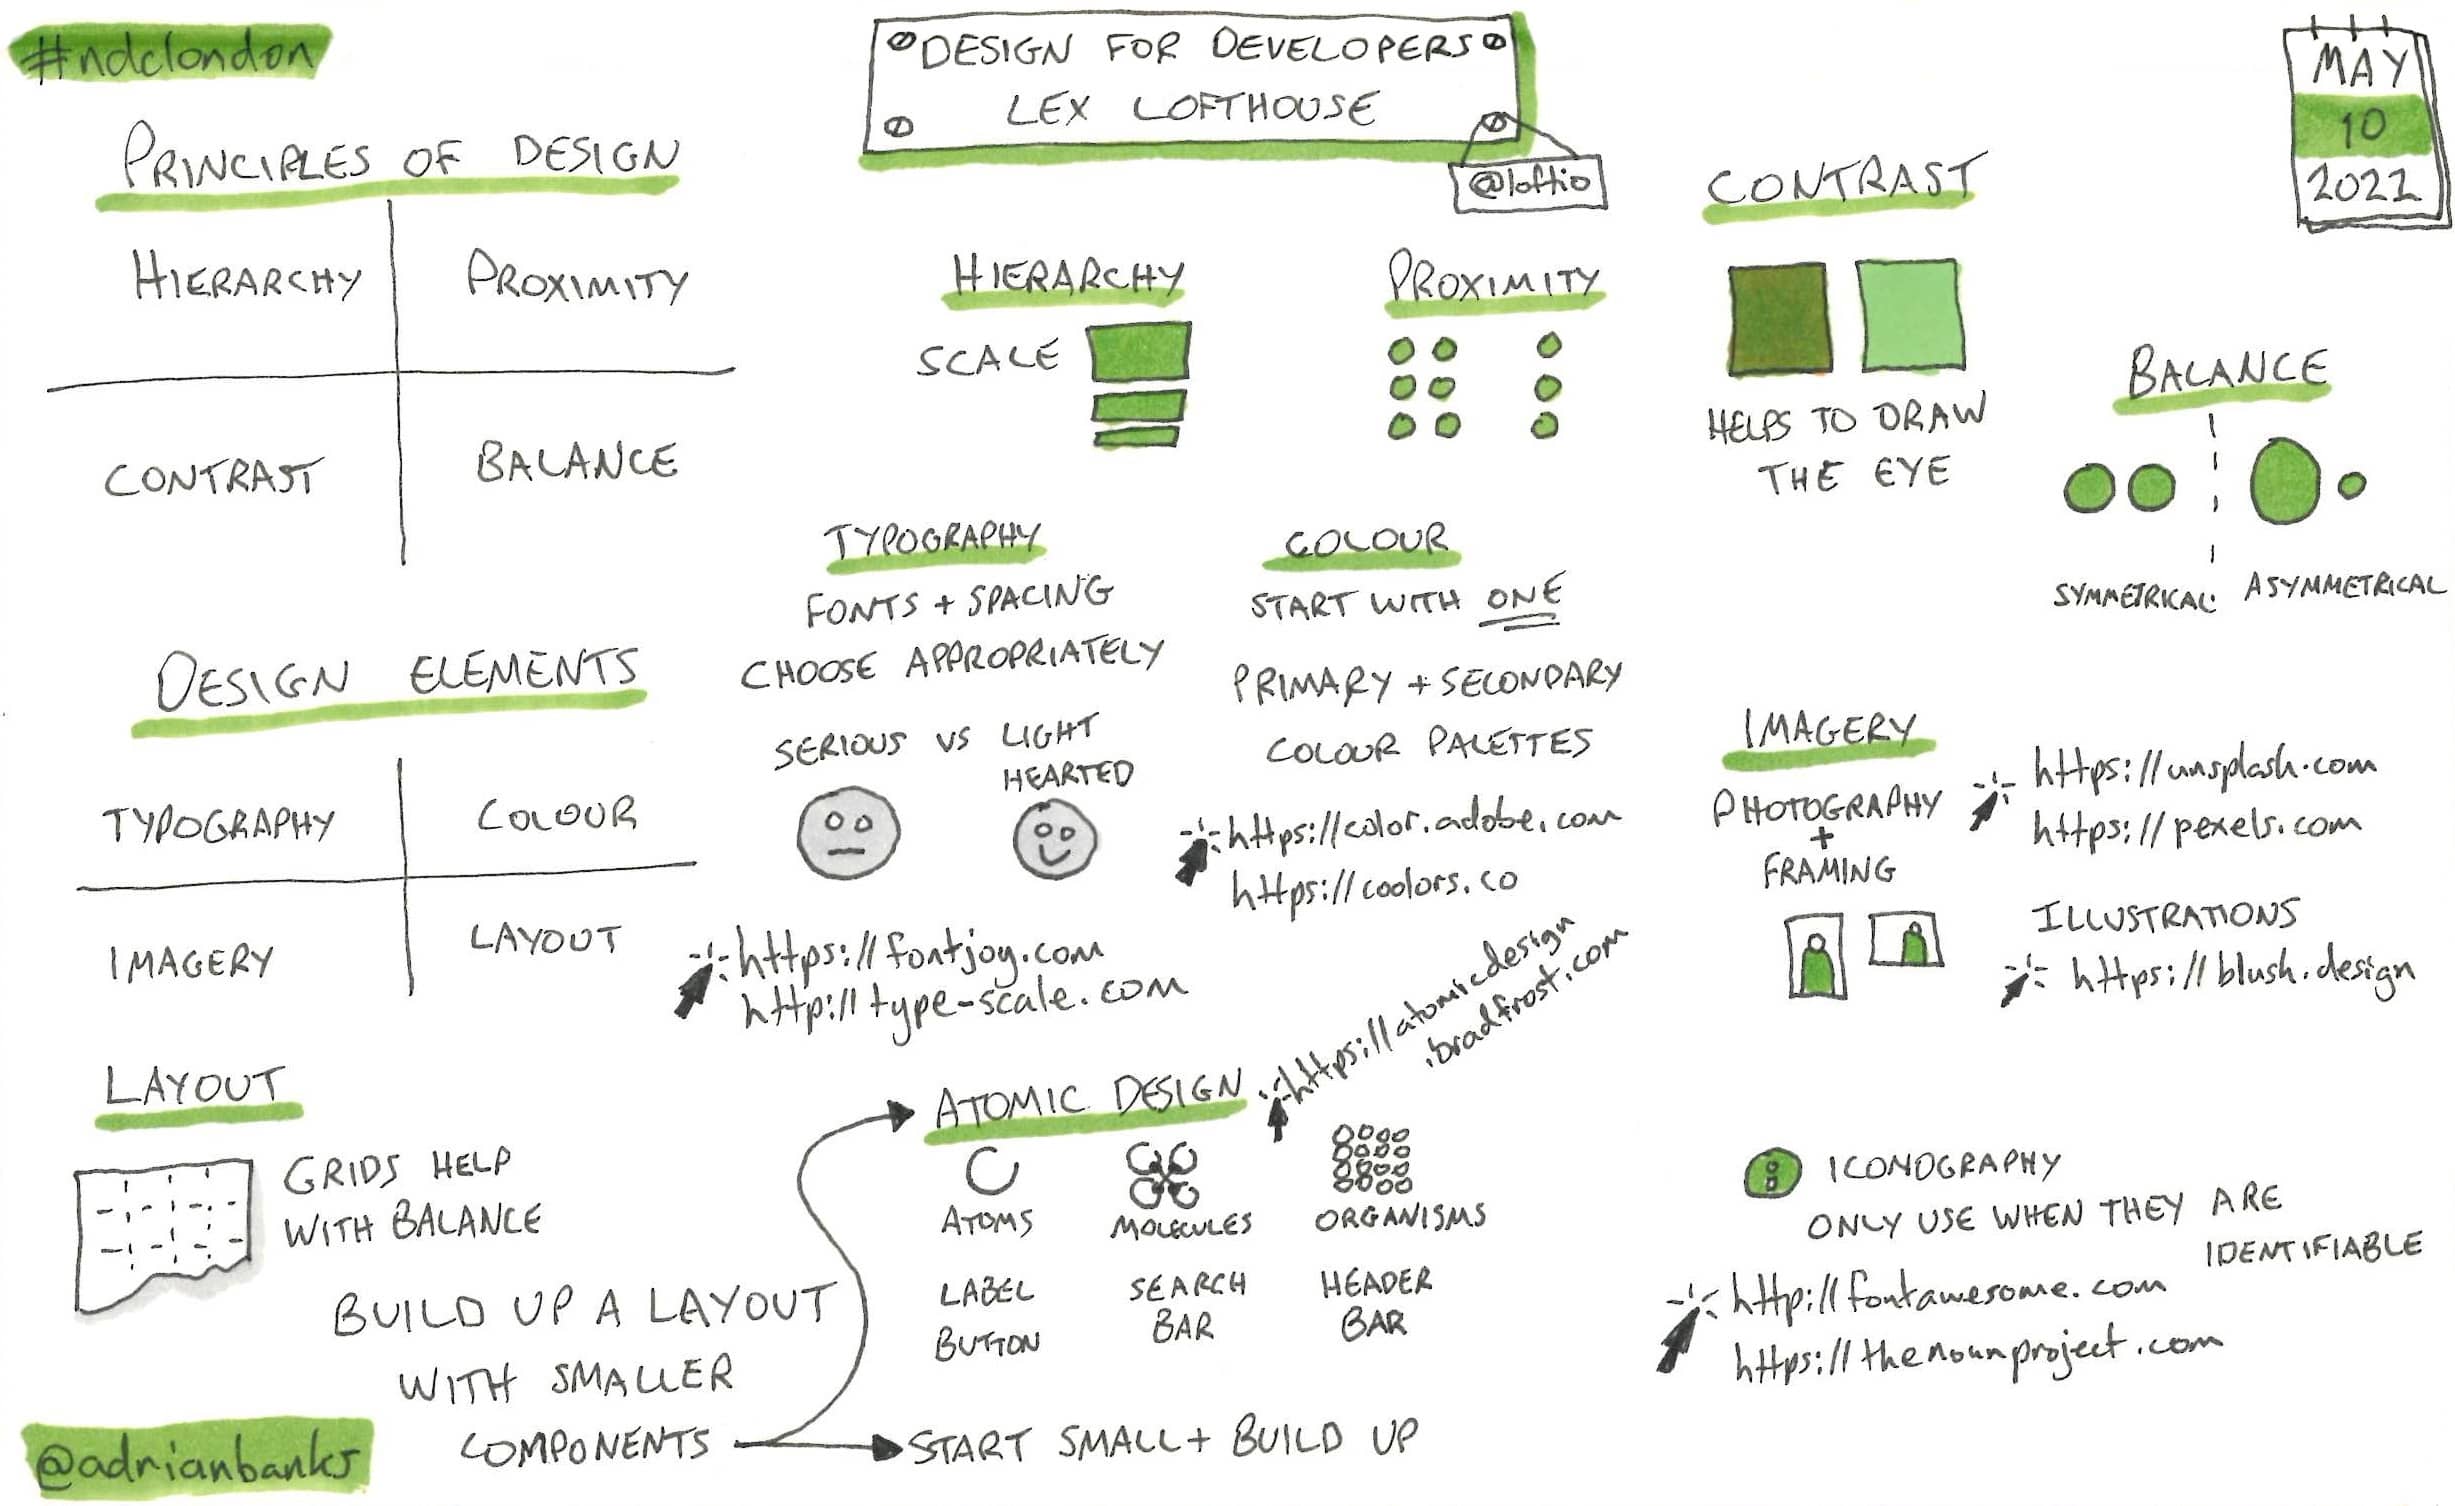 #ndclondon
DESIGN FOR DEVELOPERS
LEX LOFTHOUSE
@loftio
MAY
10
2022
PRINCIPLES OF DESIGN
HIERARCHY
PROXIMITY
CONTRAST
BALANCE
HIERARCHY
SCALE
PROXIMITY
CONTRAST
HELPS TO DRAW
THE EYE
BALANCE
SYMMETRICAL
ASYMMETRICAL
DESIGN ELEMENTS
TYPOGRAPHY
COLOUR
IMAGERY
LAYOUT
TYPOGRAPHY
FONTS + SPACING
CHOOSE APPROPRIATELY
SERIOUS VS LIGHT
HEARTED
https://fontjoy.com
http://type-scale.com
COLOUR
START WITH ONE
PRIMARY + SECONDARY
COLOUR PALETTES
https://color.adobe.com
https://coolors.co
IMAGERY
PHOTOGRAPHY
+
FRAMING
https://unsplash.com
https://pexels.com
ILLUSTRATIONS
https://blush.design
LAYOUT
GRIDS HELP
WITH BALANCE
BUILD UP A LAYOUT
WITH SMALLER
COMPONENTS
ATOMIC DESIGN
https://atomicdesign
.bradfrost.com
ATOMS
MOLECULES
ORGANISMS
LABEL
BUTTON
SEARCH
BAR
HEADER
BAR
START SMALL + BUILD UP
ICONOGRAPHY
ONLY USE WHEN THEY ARE
IDENTIFIABLE
http://fontawesome.com
https://thenounproject.com
@adrianbanks